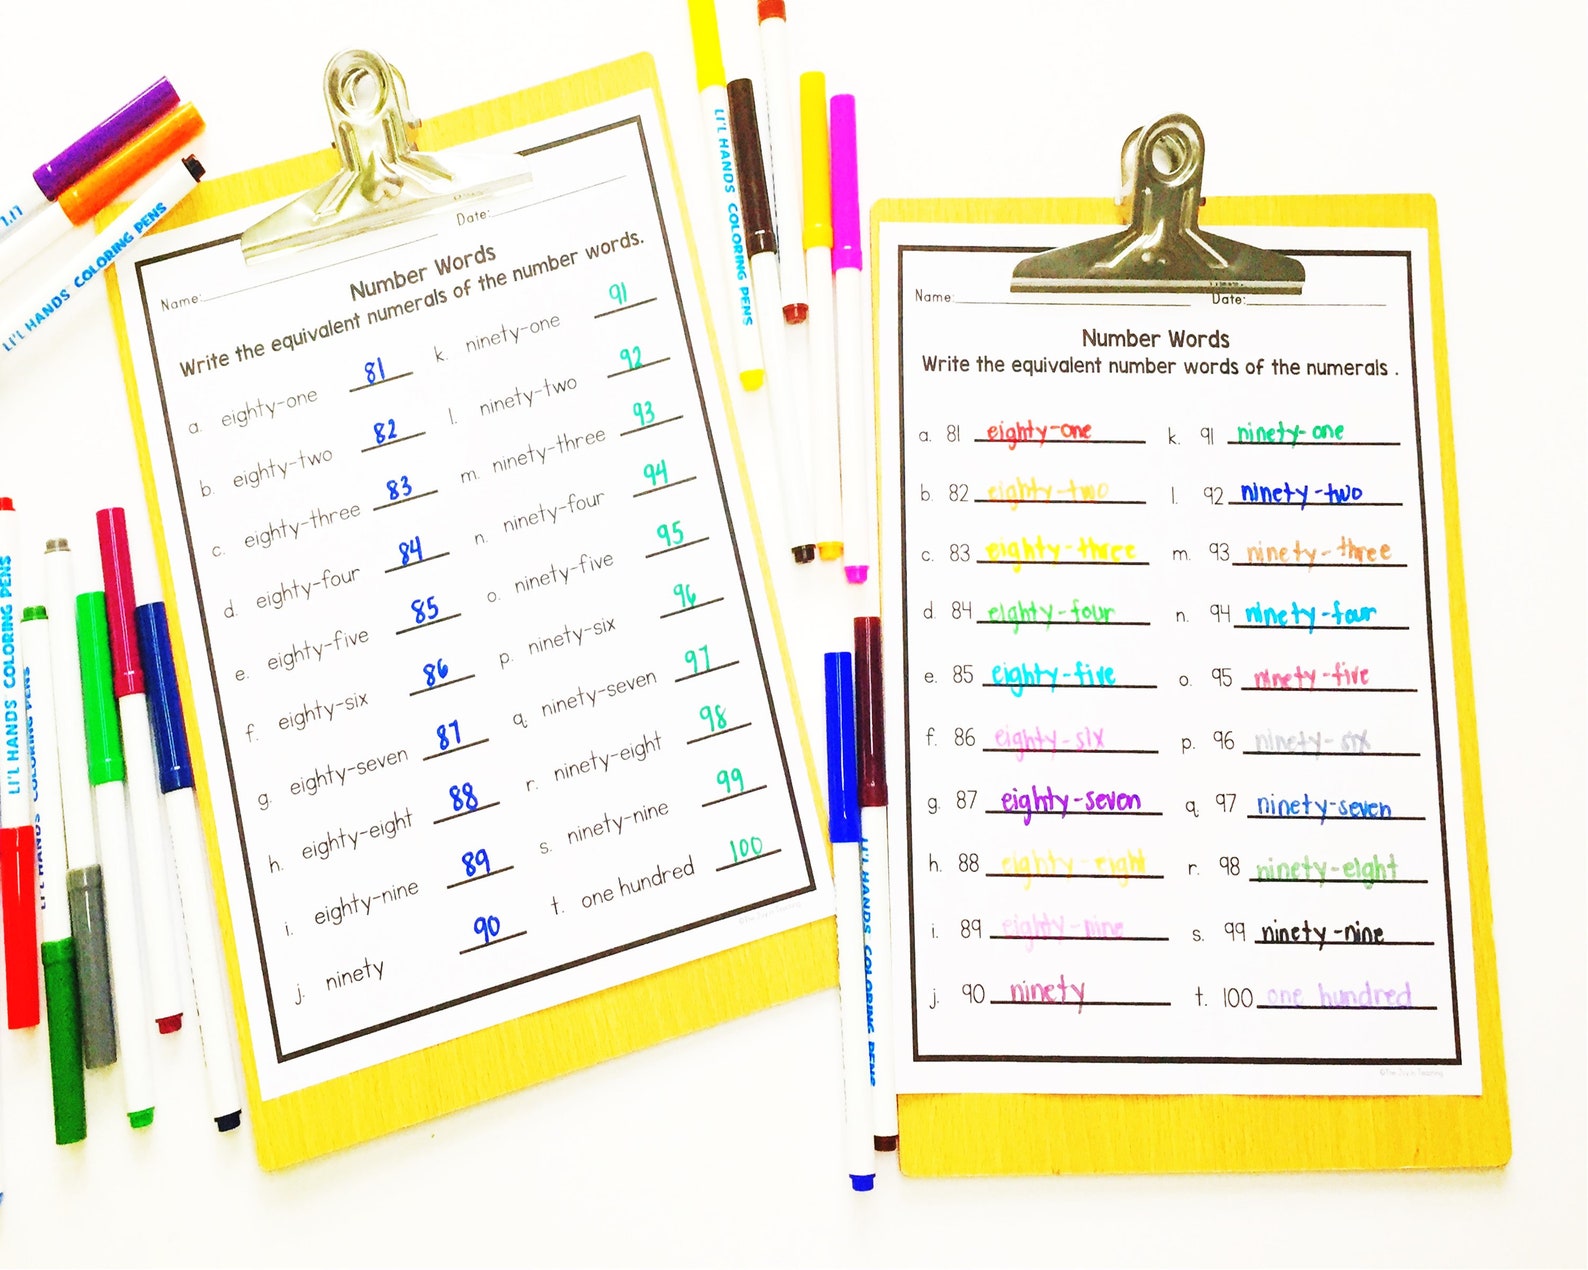 LI'L HANDS COLORING PENS
Date:
Name:
Number Words
Write the equivalent numerals of the number words.
a. eighty-one 81 k. ninety-one 91
b. eighty-two 82 l. ninety-two 92
c. eighty-three 83 m. ninety-three 93
d. eighty-four 84 n. ninety-four 94
e. eighty-five 85 o. ninety-five 95
f. eighty-six 86 p. ninety-six 96
g. eighty-seven 87 q. ninety-seven 97
h. eighty-eight 88 r. ninety-eight 98
i. eighty-nine 89 s. ninety-nine 99
j. ninety 90 t. one hundred 100
LI'L HANDS COLORING PENS
COLORING PENS
LI'L HANDS COLORING PENS
LI'L HANDS COLORING PENS
Name: Date:
Number Words
Write the equivalent number words of the numerals .
a. 81 eighty-one k. 91 ninety-one
b. 82 eighty-two l. 92 ninety-two
c. 83 eighty-three m. 93 ninety-three
d. 84 eighty-four n. 94 ninety-four
e. 85 eighty-five o. 95 ninety-five
f. 86 eighty-six p. 96 ninety-six
g. 87 eighty-seven q. 97 ninety-seven
h. 88 eighty-eight r. 98 ninety-eight
i. 89 eighty-nine s. 99 ninety-nine
j. 90 ninety t. 100 one hundred